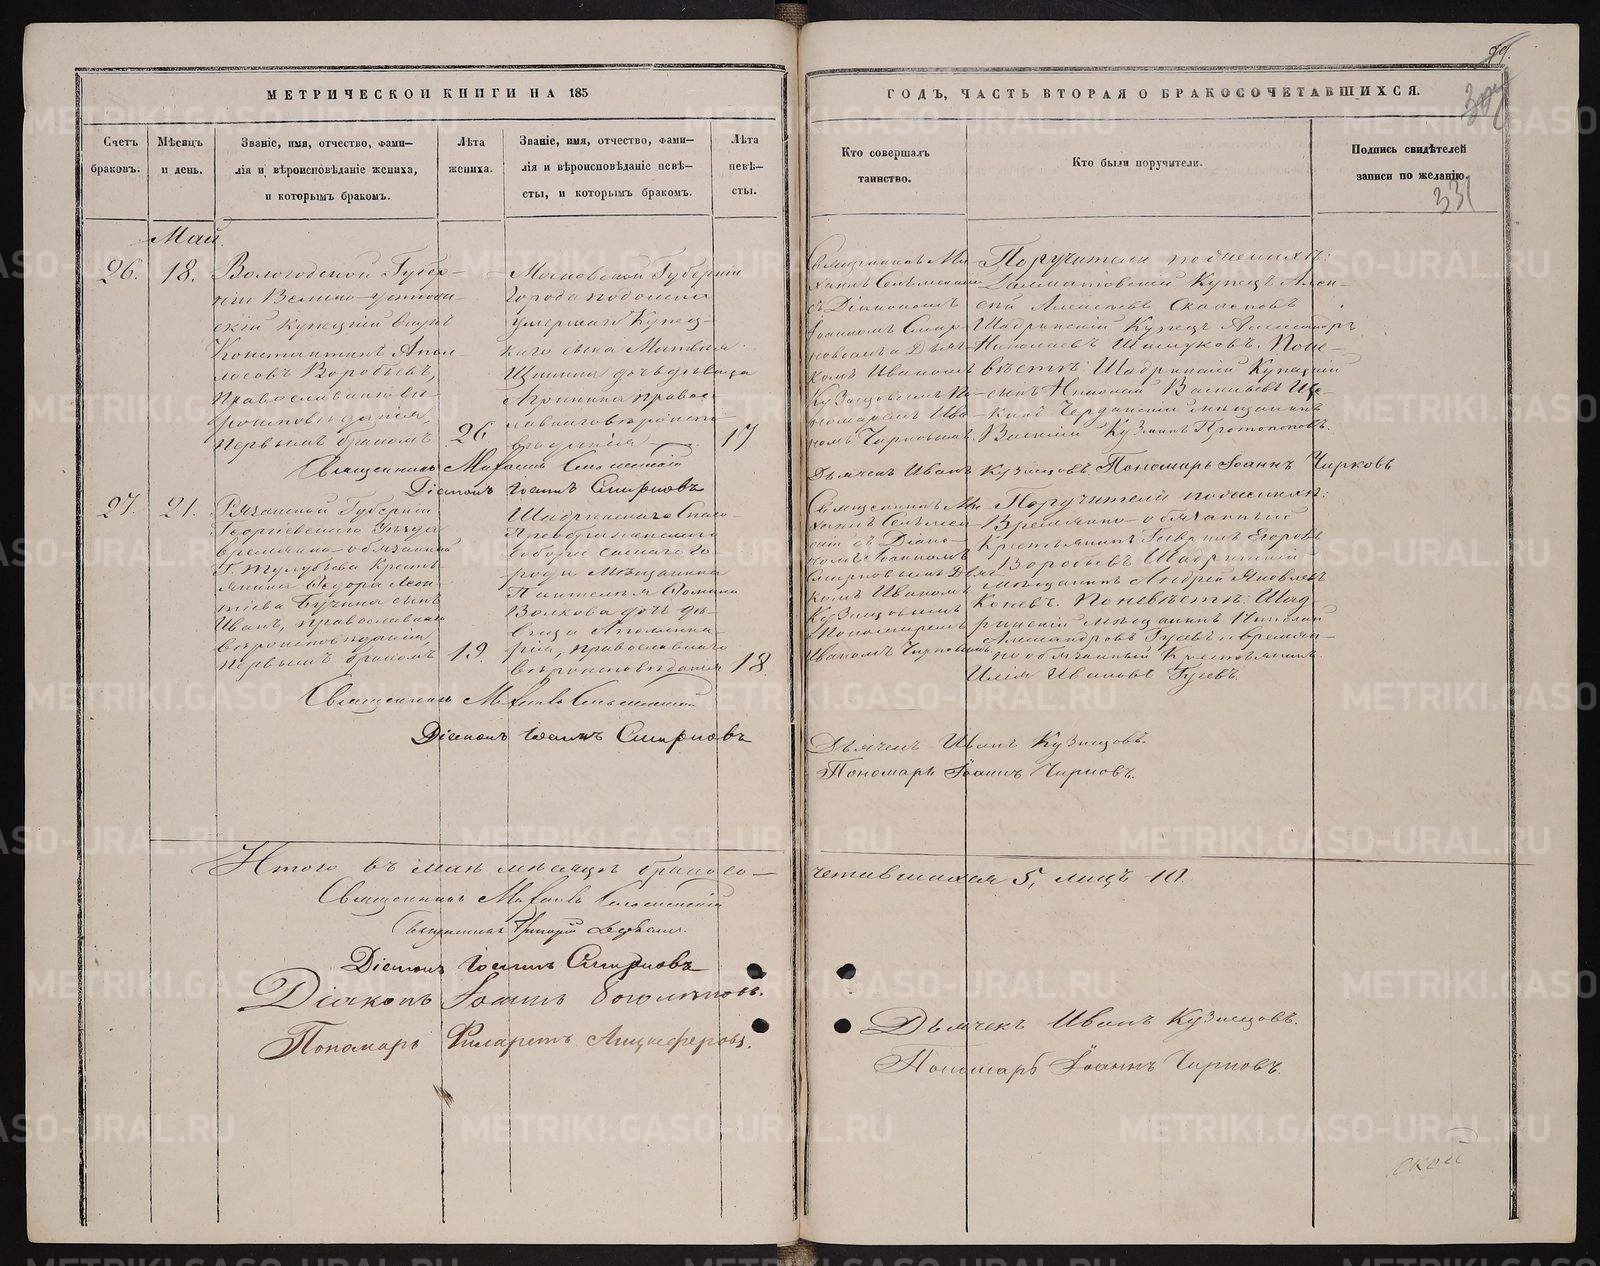 МЕТРИЧЕСКОЙ КНИГИ НА 185
Счетъ браковъ.
Мѣсяцъ и день.
Званіе, имя, отчество, фами-
лія и вѣроисповѣданіе жениха,
и которымъ бракомъ.
Лѣта жениха.
Званіе, имя, отчество, фами-
лія и вѣроисповѣданіе невѣ-
сты, и которымъ бракомъ.
Лѣта невѣ-
сты.
Май
26.
18.
Вологодской Губер-
ніи Велико-устюж
скій Купецкій внукъ
Константинъ Апол-
лосовъ Воробьевъ,
православнаго вѣ-
роисповѣданія,
первымъ бракомъ
26
Московской Губерніи
города Подольска
умершаго Купец-
каго сына Матвѣя
дочь дѣвица
Агрипина право-
славнаго вѣроиспо-
вѣданія
17
Священникъ Михаилъ
Діаконъ Іоаннъ Смирновъ
27.
21.
Рязанской Губерніи
Уѣзда
временно-обязанный
Кресть
янина Федора
сынъ
Иванъ, православнаго
вѣроисповѣданія
первымъ бракомъ
19.
Шадринскаго Спасо-
Преображенскаго
Собора сего го-
рода Мѣщанина
Пантелея Фомина
Волкова дочь дѣ-
вица Аполлина-
рія, православнаго
вѣроисповѣданія
18
Священникъ Михаилъ
Діаконъ Іоаннъ Смирновъ
Итого въ маѣ мѣсяцѣ бракосо-
Священникъ Михаилъ
Священникъ Григорій
Діаконъ Іоаннъ Смирновъ
Діаконъ Іоаннъ
Пономарь Филаретъ Анциферовъ.
ГОДЪ, ЧАСТЬ ВТОРАЯ О БРАКОСОЧЕТАВШИХСЯ.
Кто совершалъ
таинство.
Кто были поручители.
Подпись свидѣтелей
записи по желанію.
331
Священникъ Ми-
хаилъ
съ Діакономъ
Іоанномъ Смир-
новымъ Дьяч-
комъ Иваномъ
Кузнецовымъ По-
номаремъ Ива-
номъ Чирковымъ.
Поручители по женихѣ:
Далматовскій Купецъ Алек-
сѣй Алексѣевъ
Шадринскій Купецъ Александръ
Николаевъ По не-
вѣстѣ: Шадринскій Купецкій
сынъ Николай Васильевъ
Чердынскій мѣщанинъ
Василій Кузминъ Протопоповъ.
Дьячекъ Иванъ Кузнецовъ. Пономарь Іоаннъ Чирковъ
Священникъ Ми-
хаилъ
съ Діако-
номъ Іоанномъ
Смирновымъ Дьяч
комъ Иваномъ
Кузнецовымъ
Пономаремъ
Иваномъ Чирковымъ
Поручители по женихѣ:
Временно-обязанный
Крестьянинъ Гаврилъ Егоровъ
Воробьевъ Шадринскій
мѣщанинъ Андрей Яковлевъ
Коневъ. По невѣстѣ: Шад-
ринскій мѣщанинъ Николай
Александровъ Гусевъ и времен-
но обязанный Крестьянинъ
Илія Ивановъ Гусевъ.
Дьячекъ Иванъ Кузнецовъ.
Пономарь Іоаннъ Чирковъ.
четавшихся 5, лицъ 10.
Дьячекъ Иванъ Кузнецовъ.
Пономарь Іоаннъ Чирковъ.
ской
METRIKI.GASO-URAL.RU